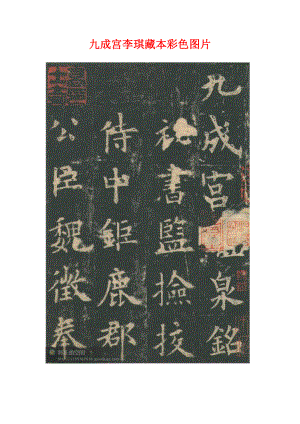 九成宫李琪藏本彩色图片
九成宮泉銘
祕書監撿挍
侍中鉅鹿郡
公臣魏徵奉